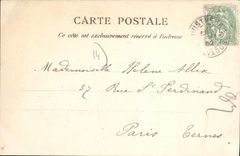 CARTE POSTALE
Ce côté est exclusivement réservé à l'adresse
14
Mademoiselle Helene Allix
37 Rue St Ferdinand
Paris Ternes